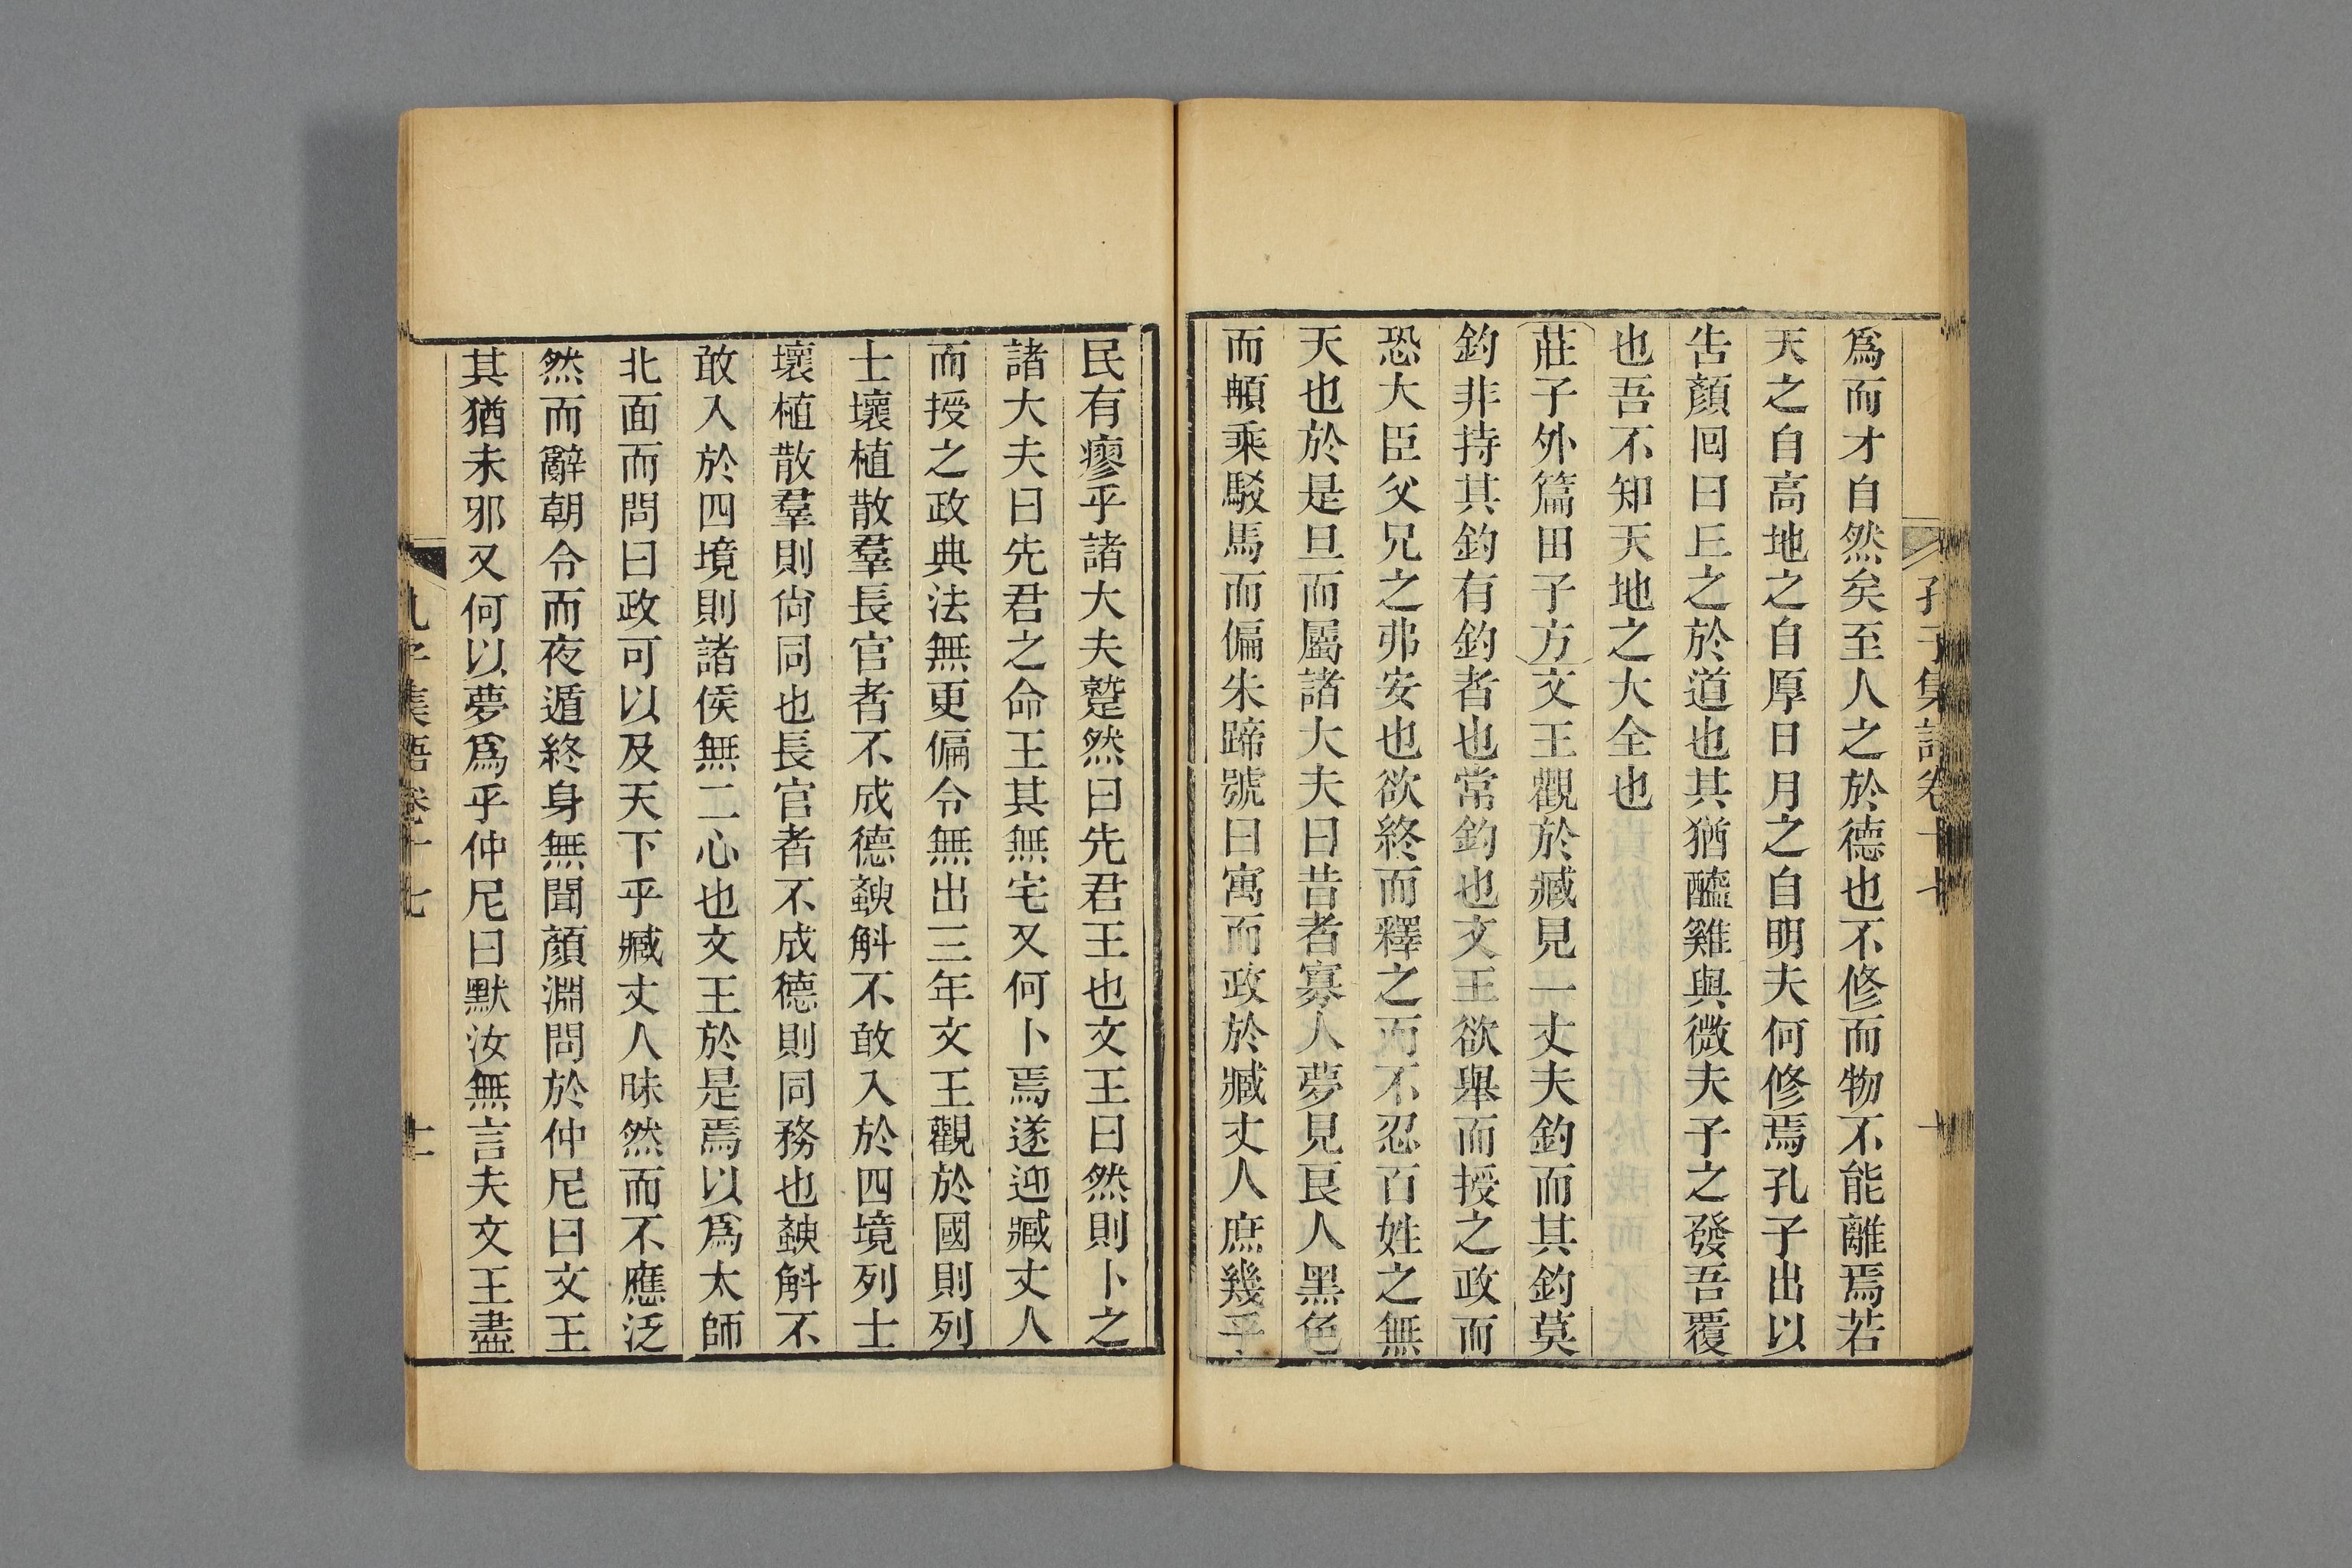 爲而才自然矣至人之於德也不修而物不能離焉若
天之自高地之自厚日月之自明夫何修焉孔子出以
告顏回曰丘之於道也其猶醯雞與微夫子之發吾覆
也吾不知天地之大全也
莊子外篇田子方文王觀於臧見一丈夫釣而其釣莫
釣非持其釣有釣者也常釣也文王欲舉而授之政而
恐大臣父兄之弗安也欲終而釋之而不忍百姓之無
天也於是旦而屬諸大夫曰昔者寡人夢見良人黑色
而䫇乘駁馬而偏朱蹄號曰寓而政於臧丈人庶幾乎
民有瘳乎諸大夫蹵然曰先君王也文王曰然則卜之
諸大夫曰先君之命王其無宅又何卜焉遂迎臧丈人
而授之政典法無更偏令無出三年文王觀於國則列
士壞植散羣長官者不成德斔斛不敢入於四境列士
壞植散羣則尙同也長官者不成德則同務也斔斛不
敢入於四境則諸侯無二心也文王於是焉以爲太師
北面而問曰政可以及天下乎臧丈人昧然而不應泛
然而辭朝令而夜遁終身無聞顏淵問於仲尼曰文王
其猶未邪又何以夢爲乎仲尼曰默汝無言夫文王盡
孔子集語卷十七